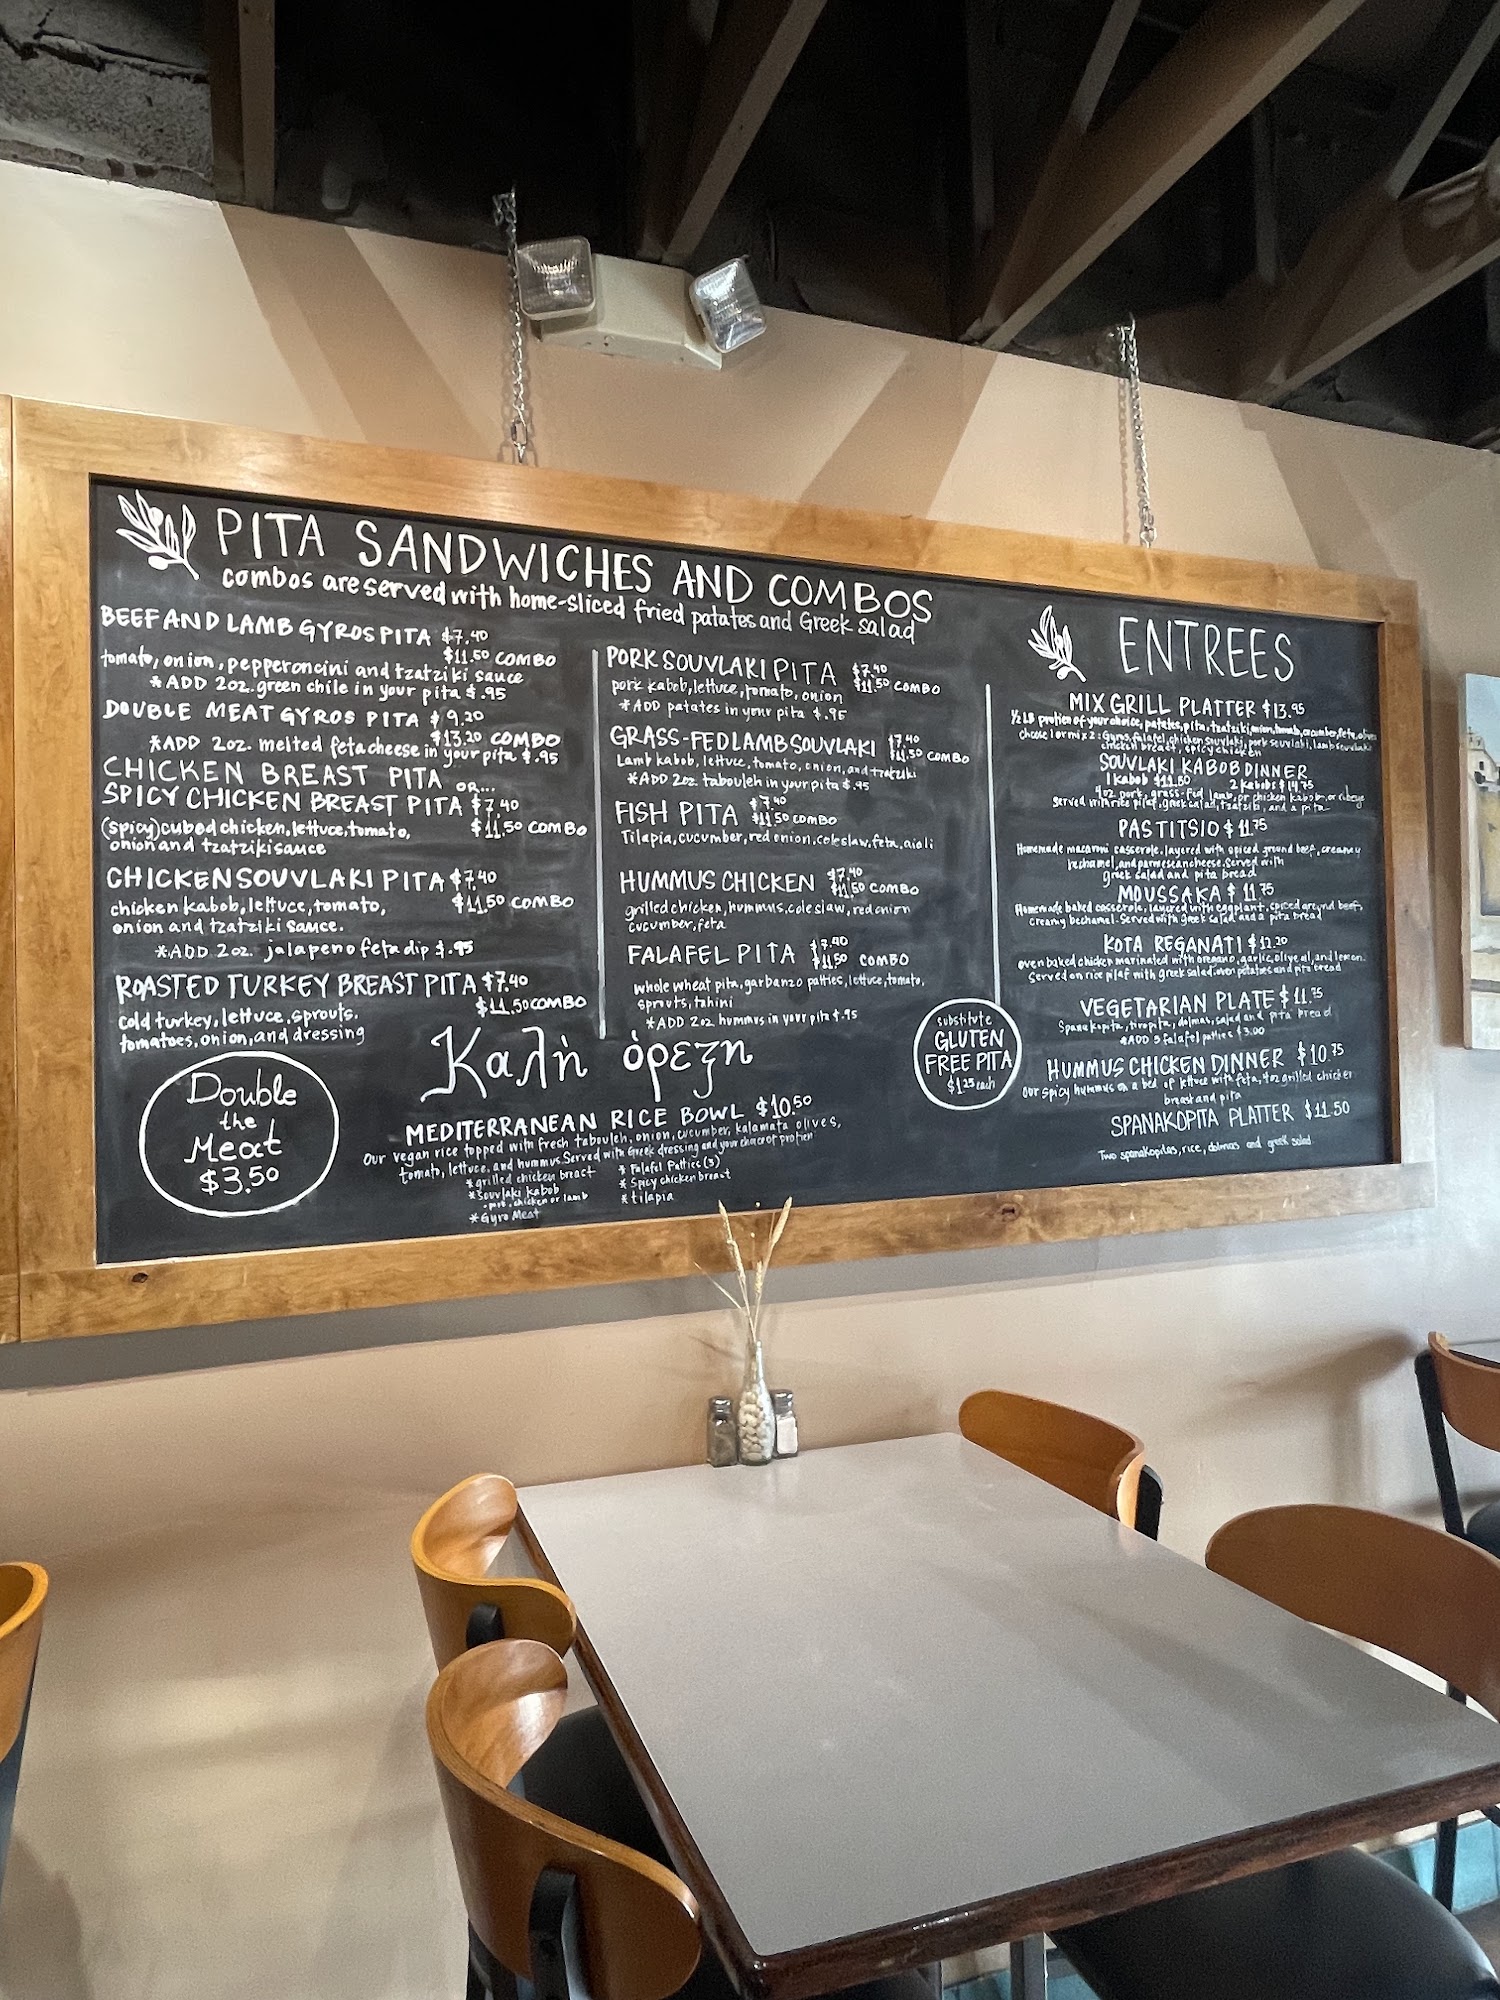 PITA SANDWICHES AND COMBOS
combos are served with home-sliced fried patates and Greek salad
BEEF AND LAMB GYROS PITA $7.40
$11.50 COMBO
tomato, onion, pepperoncini and tzatziki sauce
*ADD 2oz. green chile in your pita $.95
DOUBLE MEAT GYROS PITA $9.20
$13.20 COMBO
*ADD 2oz. melted feta cheese in your pita $.95
CHICKEN BREAST PITA or...
SPICY CHICKEN BREAST PITA $7.40
(spicy) cubed chicken, lettuce, tomato, $11.50 COMBO
onion and tzatziki sauce
CHICKEN SOUVLAKI PITA $7.40
chicken kabob, lettuce, tomato, $11.50 COMBO
onion and tzatziki sauce.
*ADD 2oz. jalapeno feta dip $.95
ROASTED TURKEY BREAST PITA $7.40
$11.50 COMBO
cold turkey, lettuce, sprouts,
tomatoes, onion, and dressing
Double
the
Meat
$3.50
PORK SOUVLAKI PITA $7.40
$11.50 COMBO
pork kabob, lettuce, tomato, onion
*ADD patates in your pita $.95
GRASS-FED LAMB SOUVLAKI $7.40
$11.50 COMBO
Lamb kabob, lettuce, tomato, onion, and tzatziki
*ADD 2oz tabouleh in your pita $.95
FISH PITA $7.40
$11.50 COMBO
Tilapia, cucumber, red onion, coleslaw, feta, aioli
HUMMUS CHICKEN $7.40
$11.50 COMBO
grilled chicken, hummus, coleslaw, red onion
cucumber, feta
FALAFEL PITA $7.40
$11.50 COMBO
whole wheat pita, garbanzo patties, lettuce, tomato,
sprouts, tahini
*ADD 2oz hummus in your pita $.95
Καλὴ ὁρεξη
MEDITERRANEAN RICE BOWL $10.50
Our vegan rice topped with fresh tabouleh, onion, cucumber, kalamata olives,
tomato, lettuce, and hummus. Served with Greek dressing and your choice of protien
*grilled chicken breast
*Souvlaki kabob
-pork, chicken or lamb
*Gyro Meat
*Falafel Patties (3)
*Spicy chicken breast
*tilapia
substitute
GLUTEN
FREE PITA
$1.25 each
ENTREES
MIX GRILL PLATTER $13.95
1/2 LB protien of your choice, patates, pita, tzatziki, onion, tomato, cucumber, feta, olives
choose 1 or mix 2: Gyros, falafel, chicken souvlaki, pork souvlaki, lamb souvlaki
chicken breast, spicy chicken
SOUVLAKI KABOB DINNER
1 kabob $11.50 2 kabobs $14.75
4oz pork, grass-fed lamb, or chicken kabob, or ribeye
served with rice pilaf, greek salad, tzatziki, and a pita
PASTITSIO $11.75
Homemade macaroni casserole, layered with spiced ground beef, creamy
bechamel, and parmesean cheese. Served with
greek salad and pita bread
MOUSSAKA $11.75
Homemade baked casserole, layered with eggplant, spiced ground beef,
creamy bechamel. Served with greek salad and a pita bread
KOTA REGANATI $12.20
oven baked chicken marinated with oregano, garlic, olive oil, and lemon.
Served on rice pilaf with greek salad, oven potatoes and pita bread
VEGETARIAN PLATE $11.75
Spanakopita, tiropita, dolmas, salad and pita bread
*ADD 3 falafel patties $3.00
HUMMUS CHICKEN DINNER $10.75
our spicy hummus on a bed of lettuce with feta, 4oz grilled chicken
breast and pita
SPANAKOPITA PLATTER $11.50
Two spanakopitas, rice, dolmas and greek salad